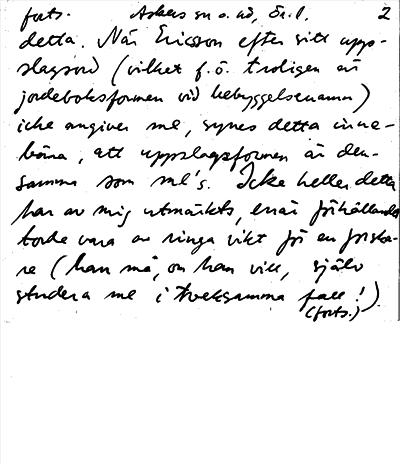 forts. Askers sn o. hd, Ör. l. 2
detta. När Ericsson efter sitt upp-
slagsord (vilket f.ö. troligen är
jordeboksformen vid bebyggelsenamn)
icke angiver me, synes detta inne-
bära, att uppslagsformen är den-
samma som me's. Icke heller detta
har av mig utmärkts, enär förhållandet
torde vara av ringa vikt för en forska-
re (han må, om han vill, själv
studera me i tveksamma fall!)
(forts.)